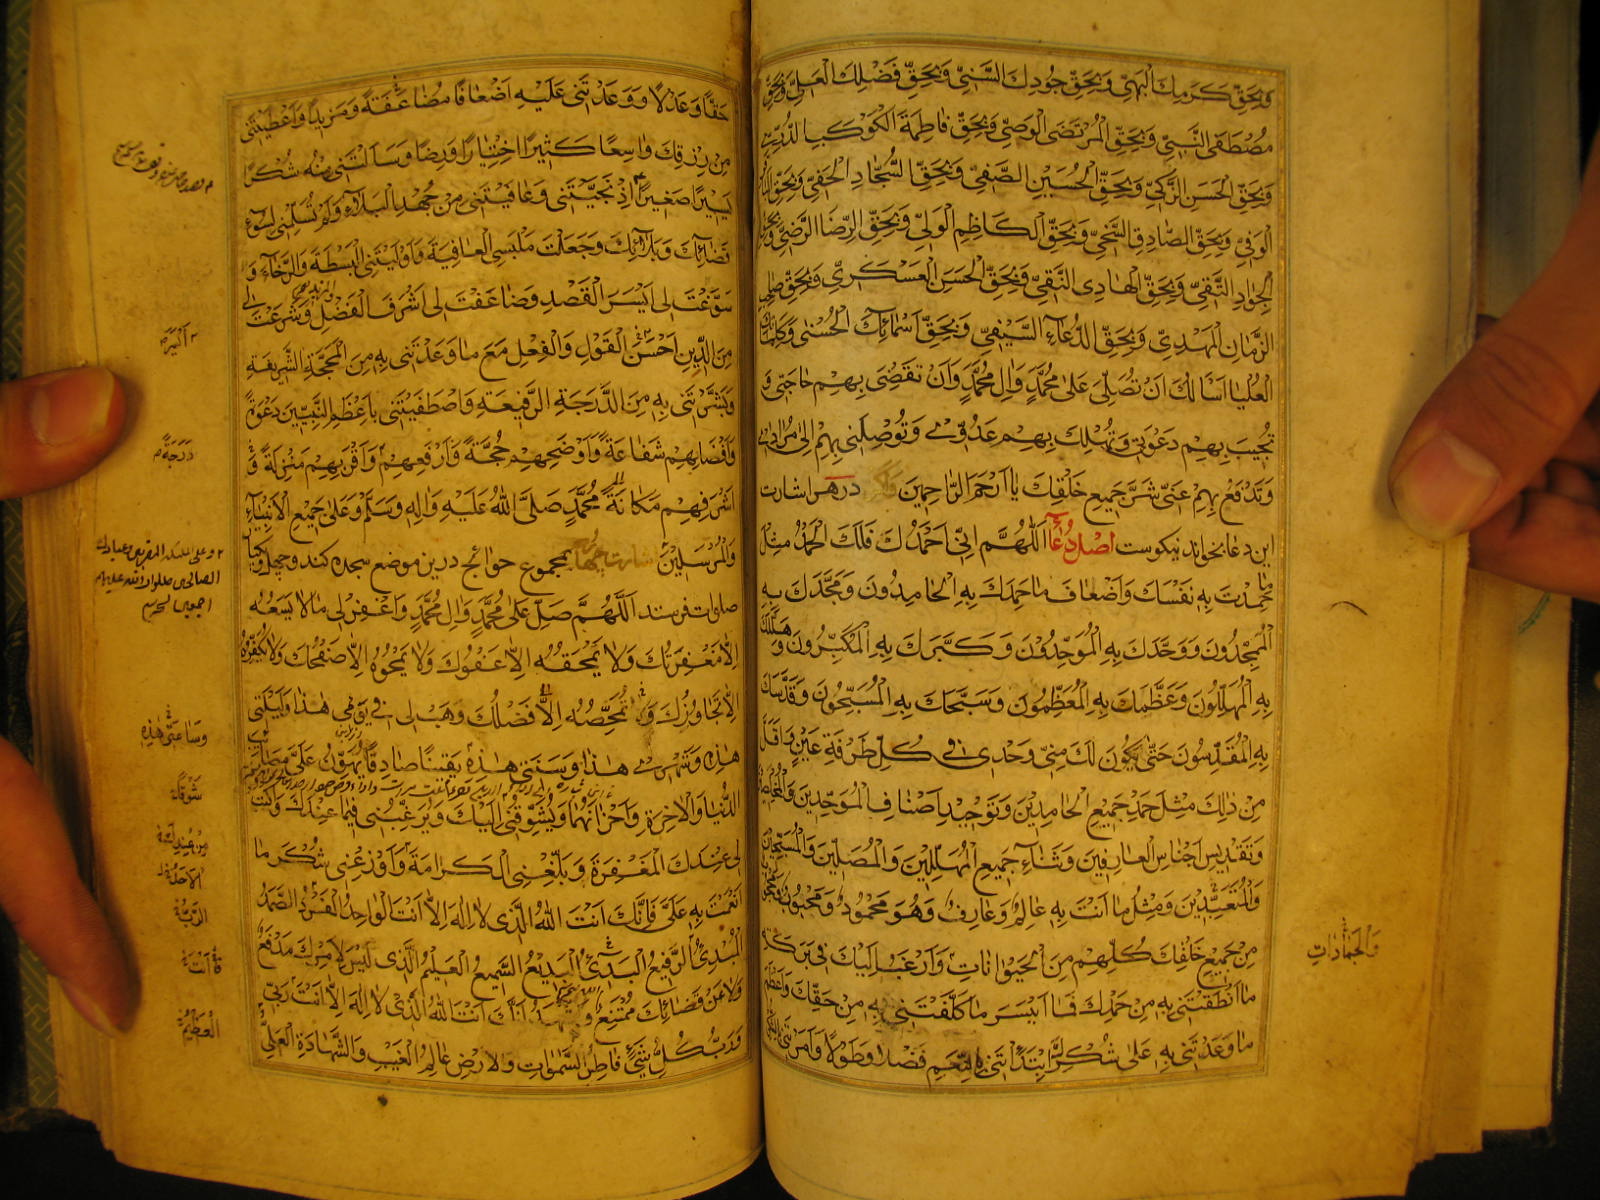 وَبِحَقِّ كَرَمِكَ الْبَهِيِّ وَبِحَقِّ جُودِكَ السَّنِيِّ وَبِحَقِّ فَضْلِكَ الْعَلِيِّ وَبِحَقِّ
مُصْطَفَى النَّبِيِّ وَبِحَقِّ الْمُرْتَضَى الْوَصِيِّ وَبِحَقِّ فَاطِمَةَ الْكَوْكَبِ الدُّرِّيِّ
وَبِحَقِّ الْحَسَنِ الزَّكِيِّ وَبِحَقِّ الْحُسَيْنِ الصَّفِيِّ وَبِحَقِّ السَّجَّادِ الْحَفِيِّ وَبِحَقِّ
الْوَفِيِّ وَبِحَقِّ الصَّادِقِ السَّخِيِّ وَبِحَقِّ الْكَاظِمِ الْوَلِيِّ وَبِحَقِّ الرِّضَا الرَّضِيِّ وَبِحَقِّ
الْجَوَادِ التَّقِيِّ وَبِحَقِّ الْهَادِي النَّقِيِّ وَبِحَقِّ الْحَسَنِ الْعَسْكَرِيِّ وَبِحَقِّ صَاحِبِ
الزَّمَانِ الْمَهْدِيِّ وَبِحَقِّ الدُّعَاءِ السَّيْفِيِّ وَبِحَقِّ اَسْمَائِكَ الْحُسْنَى وَكَلِمَاتِكَ
الْعُلْيَا اَسْأَلُكَ اَنْ تُصَلِّيَ عَلَى مُحَمَّدٍ وَاٰلِ مُحَمَّدٍ وَاَنْ تَقْضِيَ بِهِمْ حَاجَتِي وَ
تُجِيبَ بِهِمْ دَعْوَتِي وَتُهْلِكَ بِهِمْ عَدُوِّي وَتُوْصِلَنِي بِهِمْ اِلَى مُرَادِي
وَتَدْفَعَ بِهِمْ عَنِّي شَرَّ جَمِيعِ خَلْقِكَ يَا اَرْحَمَ الرَّاحِمِينَ در هر اشارت
این دعا بخواند نیکوست اصل دُعَا اَللّٰهُمَّ اِنِّي اَحْمَدُكَ فَلَكَ الْحَمْدُ مِثْلَ
مَا حَمِدْتَ بِهِ نَفْسَكَ وَاَضْعَافَ مَا حَمِدَكَ بِهِ الْحَامِدُونَ وَمَجَّدَكَ بِهِ
الْمُمَجِّدُونَ وَوَحَّدَكَ بِهِ الْمُوَحِّدُوْنَ وَكَبَّرَكَ بِهِ الْمُكَبِّرُونَ وَهَلَّلَكَ
بِهِ الْمُهَلِّلُونَ وَعَظَّمَكَ بِهِ الْمُعَظِّمُونَ وَسَبَّحَكَ بِهِ الْمُسَبِّحُونَ وَقَدَّسَكَ
بِهِ الْمُقَدِّسُونَ حَتَّى يَكُونَ لَكَ مِنِّي وَحْدِي فِي كُلِّ طَرْفَةِ عَيْنٍ وَاَقَلَّ
مِنْ ذٰلِكَ مِثْلَ حَمْدِ جَمِيعِ الْحَامِدِيْنَ وَتَوْحِيْدِ اَصْنَافِ الْمُوَحِّدِيْنَ
وَتَقْدِيْسِ اَجْنَاسِ الْعَارِفِيْنَ وَثَنَاءِ جَمِيعِ الْمُهَلِّلِيْنَ وَالْمُصَلِّيْنَ وَالْمُسَبِّحِيْنَ
وَمِثْلَ مَا اَنْتَ بِهِ عَالِمٌ وَعَارِفٌ وَهُوَ مَحْمُودٌ وَمَحْبُوبٌ
مِنْ جَمِيعِ خَلْقِكَ كُلِّهِمْ مِنَ الْحَيْوَانَاتِ وَاَرْغَبُ اِلَيْكَ فِي بَرَكَةِ
مَا اَنْطَقْتَنِي بِهِ مِنْ حَمْدِكَ فَمَا اَيْسَرَ مَا كَلَّفْتَنِي بِهِ مِنْ حَقِّكَ وَاَعْظَمَ
مَا وَعَدْتَنِي بِهِ عَلَى شُكْرِكَ اِبْتَدَأْتَنِي بِالنِّعَمِ فَضْلًا وَطَوْلًا وَاَمَرْتَنِي
وَالْجَمَادَاتِ
حَقًّا وَعَدْلًا وَوَعَدْتَنِي عَلَيْهِ اَضْعَافًا مُضَاعَفَةً وَمَزِيدًا وَاَعْطَيْتَنِي
مِنْ رِزْقِكَ وَاسِعًا كَثِيْرًا اخْتِيَارًا وَرِضًا وَسَأَلْتَنِي مِنْهُ شُكْرًا
يَسِيْرًا صَغِيْرًا اِذْ نَجَّيْتَنِي وَعَافَيْتَنِي مِنْ جُهْدِ الْبَلَاءِ وَلَمْ تُسْلِمْنِي لِسُوْءِ
قَضَائِكَ وَبَلَائِكَ وَجَعَلْتَ مَلْبَسِيَ الْعَافِيَةَ وَاَوْلَيْتَنِي الْبَسْطَةَ وَالرَّخَاءَ وَ
سَوَّغْتَ لِي اَيْسَرَ الْقَصْدِ وَضَاعَفْتَ لِي اَشْرَفَ الْفَضْلِ وَشَرَعْتَ لِي
مِنَ الدِّينِ اَحْسَنَ الْقَوْلِ وَالْفِعْلِ مَعَ مَا وَعَدْتَنِي بِهِ مِنَ الْمَحَجَّةِ الشَّرِيفَةِ
وَبَشَّرْتَنِي بِهِ مِنَ الدَّرَجَةِ الرَّفِيعَةِ وَاصْطَفَيْتَنِي بِاَعْظَمِ النَّبِيِّينَ دَعْوَةً
وَاَفْضَلِهِمْ شَفَاعَةً وَاَوْضَحِهِمْ حُجَّةً وَاَرْفَعِهِمْ وَاَقْرَبِهِمْ مَنْزِلَةً وَ
اَشْرَفِهِمْ مَكَانَةً مُحَمَّدٍ صَلَّى اللهُ عَلَيْهِ وَاٰلِهِ وَسَلَّمَ وَعَلَى جَمِيعِ الْاَنْبِيَاءِ
وَالْمُرْسَلِيْنَ بمجموع حوائج درین موضع سجده کند و چهل و یکبار
صلوات فرستد اَللّٰهُمَّ صَلِّ عَلَى مُحَمَّدٍ وَاٰلِ مُحَمَّدٍ وَاغْفِرْ لِي مَا لَا يَسَعُهُ
اِلَّا مَغْفِرَتُكَ وَلَا يَمْحَقُهُ اِلَّا عَفْوُكَ وَلَا يَمْحُوْهُ اِلَّا صَفْحُكَ وَلَا يُكَفِّرُهُ
اِلَّا تَجَاوُزُكَ وَلَا تُمَحِّصُهُ اِلَّا فَضْلُكَ وَهَبْ لِي فِي يَوْمِي هٰذَا وَلَيْلَتِي
هٰذِهِ وَشَهْرِي هٰذَا وَسَنَتِي هٰذِهِ يَقِيْنًا صَادِقًا يُهَوِّنُ عَلَيَّ مَصَائِبَ
الدُّنْيَا وَالْاٰخِرَةِ وَاَحْزَانَهُمَا وَيُشَوِّقُنِي اِلَيْكَ وَيُرَغِّبُنِي فِيمَا عِنْدَكَ وَاكْتُبْ
لِي عِنْدَكَ الْمَغْفِرَةَ وَبَلِّغْنِي الْكَرَامَةَ وَاَوْزِعْنِي شُكْرَ مَا
اَنْعَمْتَ بِهِ عَلَيَّ فَاِنَّكَ اَنْتَ اللهُ الَّذِي لَا اِلٰهَ اِلَّا اَنْتَ الْوَاحِدُ الْفَرْدُ الصَّمَدُ
الْمُبْدِئُ الرَّفِيعُ الْبَدِيْءُ الْبَدِيعُ السَّمِيعُ الْعَلِيْمُ الَّذِي لَيْسَ لِاَمْرِكَ مَدْفَعٌ
وَلَا عَنْ قَضَائِكَ مُمْتَنِعٌ وَاَشْهَدُ اَنَّكَ اَنْتَ اللهُ الَّذِي لَا اِلٰهَ اِلَّا اَنْتَ رَبِّي
وَرَبُّ كُلِّ شَيْءٍ فَاطِرُ السَّمٰوَاتِ وَالْاَرْضِ عَالِمُ الْغَيْبِ وَالشَّهَادَةِ الْعَلِيُّ
دَرَجَةً
وعلى ملائكتك المقربين وعبادك
الصالحين صلوات الله عليهم
اجمعين
وَسَاعَتِي هٰذِهِ
شَوْقًا
مِنْ عِنْدِكَ
الْاَحَدُ